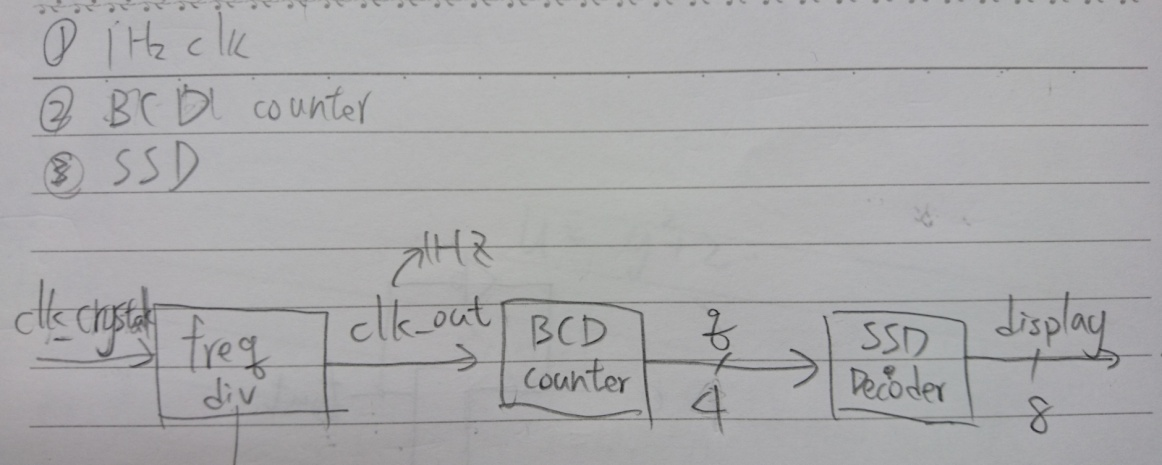 ① 1Hz clk
② BCD counter
③ SSD
1Hz
clk_crystal
freq div
clk_out
BCD counter
q
4
SSD Decoder
display
8